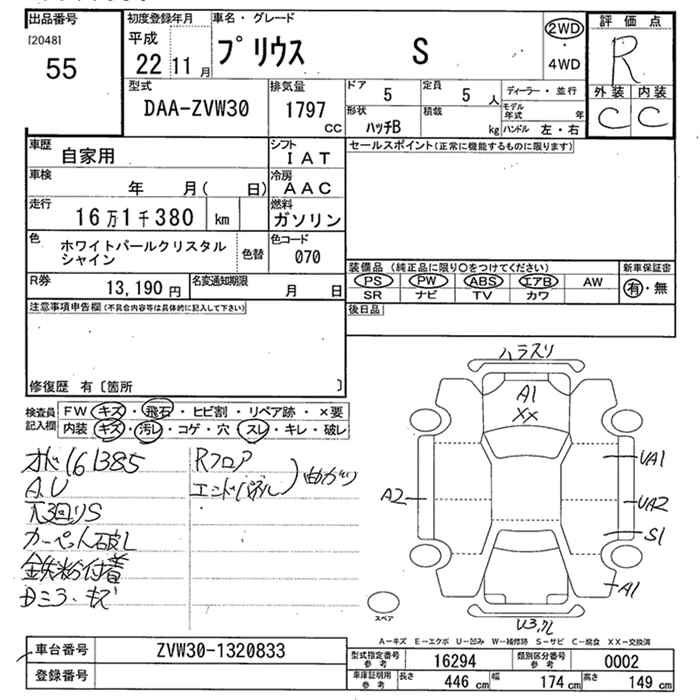 出品番号 初度登録年月 車名・グレード 評価点
[2048] 55
平成 22 11月
プリウス S
2WD・4WD
R
外装 内装
C C
型式 排気量 ドア 5 定員 5人 ディーラー・並行
DAA-ZVW30 1797 CC
形状 ハッチB 積載 kg モデル年式 年
ハンドル 左・右
車歴 自家用 シフト IAT セールスポイント(正常に機能するものに限ります)
車検 年 月( 日) 冷房 AAC
走行 16万1千380 km 燃料 ガソリン
色 ホワイトパールクリスタルシャイン 色替 色コード 070
装備品 (純正品に限り○をつけてください) 新車保証書
PS PW ABS エアB AW 有・無
SR ナビ TV カワ
R券 13,190円 名変通知期限 月 日
注意事項申告欄(不具合内容等は具体的に記入して下さい) 後日品
修復歴 有〔箇所 〕
検査員記入欄 FW キズ・飛石・ヒビ割・リペア跡・×要
内装 キズ・汚レ・コゲ・穴・スレ・キレ・破レ
オド161385
A.U
カーペット破レ
鉄粉付着
Rフロア
エンドパネル
曲がり
ハラスリ
A1
XX
A2
UA1
UA2
S1
A1
スペア
A-キズ E-エクボ U-凹み W-補修跡 S-サビ C-腐食 XX-交換済
車台番号 ZVW30-1320833
登録番号
型式指定番号 参考 16294 類別区分番号 参考 0002
車庫証明用 参考 長さ 446cm 幅 174cm 高さ 149cm